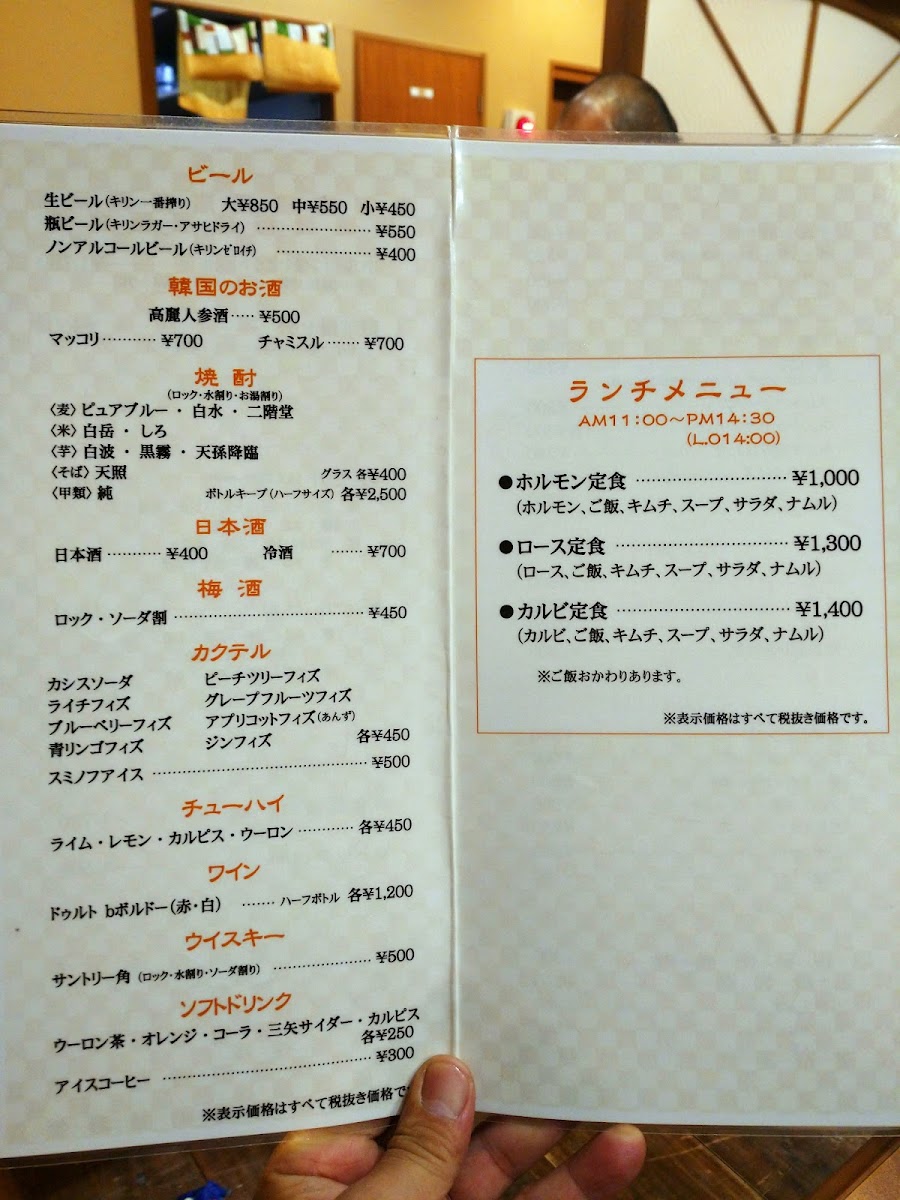 ビール
生ビール(キリン一番搾り) 大¥850 中¥550 小¥450
瓶ビール(キリンラガー・アサヒドライ) ………………… ¥550
ノンアルコールビール(キリンゼロイチ) ………………… ¥400
韓国のお酒
高麗人参酒 ····· ¥500
マッコリ ··········· ¥700 チャミスル ······· ¥700
焼酎
(ロック・水割り・お湯割り)
〈麦〉ピュアブルー ・ 白水 ・ 二階堂
〈米〉白岳 ・ しろ
〈芋〉白波 ・ 黒霧 ・ 天孫降臨
〈そば〉天照 グラス 各¥400
〈甲類〉純 ボトルキープ(ハーフサイズ) 各¥2,500
日本酒
日本酒 ··········· ¥400 冷酒 ······· ¥700
梅酒
ロック・ソーダ割 ………………… ¥450
カクテル
カシスソーダ ピーチツリーフィズ
ライチフィズ グレープフルーツフィズ
ブルーベリーフィズ アプリコットフィズ(あんず)
青リンゴフィズ ジンフィズ 各¥450
スミノフアイス ………………… ¥500
チューハイ
ライム・レモン・カルピス・ウーロン ············ 各¥450
ワイン
ドゥルト bボルドー(赤・白) ······· ハーフボトル 各¥1,200
ウイスキー
サントリー角(ロック・水割り・ソーダ割り) ………………… ¥500
ソフトドリンク
ウーロン茶・オレンジ・コーラ・三矢サイダー・カルピス
各¥250
アイスコーヒー ………………… ¥300
※表示価格はすべて税抜き価格で
ランチメニュー
AM11:00〜PM14:30
(L.O14:00)
●ホルモン定食 ………………… ¥1,000
(ホルモン、ご飯、キムチ、スープ、サラダ、ナムル)
●ロース定食 ………………… ¥1,300
(ロース、ご飯、キムチ、スープ、サラダ、ナムル)
●カルビ定食 ………………… ¥1,400
(カルビ、ご飯、キムチ、スープ、サラダ、ナムル)
※ご飯おかわりあります。
※表示価格はすべて税抜き価格です。